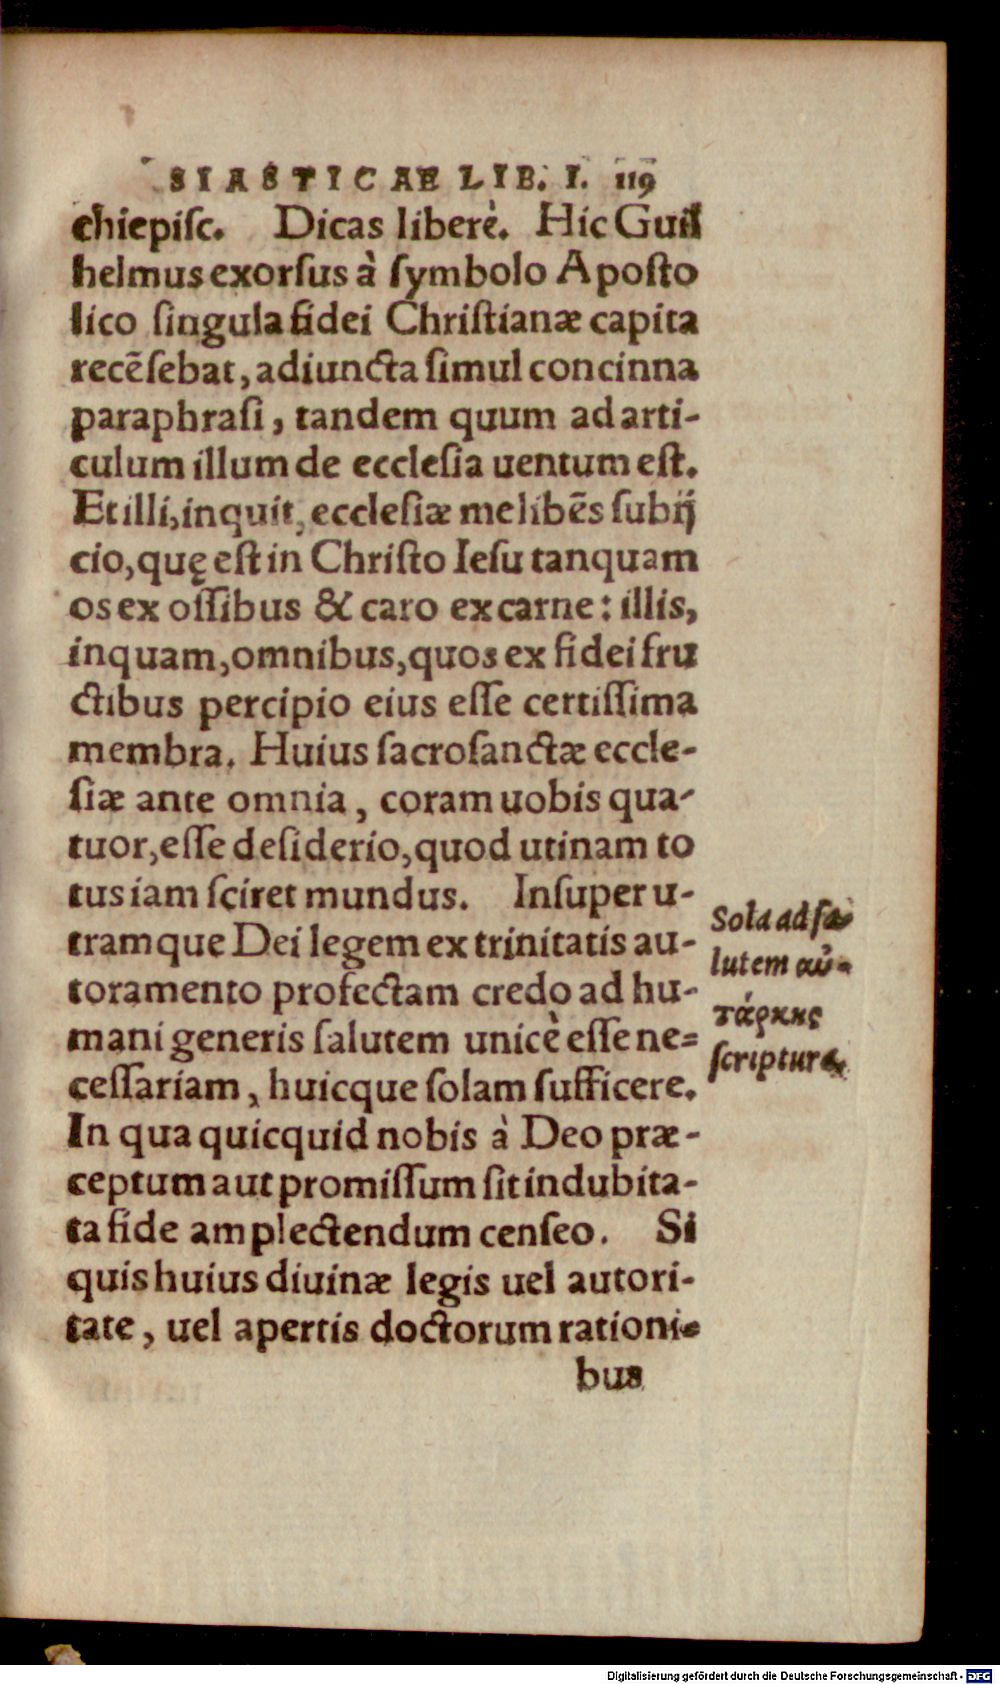 SIASTICAE LIB. I. 119
chiepiſc. Dicas liberè. Hic Guil
helmus exorſus à ſymbolo Apoſto
lico ſingula fidei Chriſtianæ capita
recẽſebat, adiuncta ſimul concinna
paraphraſi, tandem quum ad arti-
culum illum de eccleſia uentum eſt.
Et illi, inquit, eccleſiæ me libẽs ſubij
cio, quę eſt in Chriſto Ieſu tanquam
os ex oſſibus & caro ex carne: illis,
inquam, omnibus, quos ex fidei fru
ctibus percipio eius eſſe certiſſima
membra. Huius ſacroſanctæ eccle-
ſiæ ante omnia, coram uobis qua-
tuor, eſſe deſiderio, quod utinam to
tus iam ſciret mundus. Inſuper u-
tramque Dei legem ex trinitatis au-
toramento profectam credo ad hu-
mani generis ſalutem unicè eſſe ne=
ceſſariam, huicque ſolam ſufficere.
In qua quicquid nobis à Deo præ-
ceptum aut promiſſum ſit indubita-
ta fide amplectendum cenſeo. Si
quis huius diuinæ legis uel autori-
tate, uel apertis doctorum rationi-
bus
Sola ad ſa-
lutem αὐ-
τάρκης
ſcriptura.
Digitalisierung gefördert durch die Deutsche Forschungsgemeinschaft - DFG